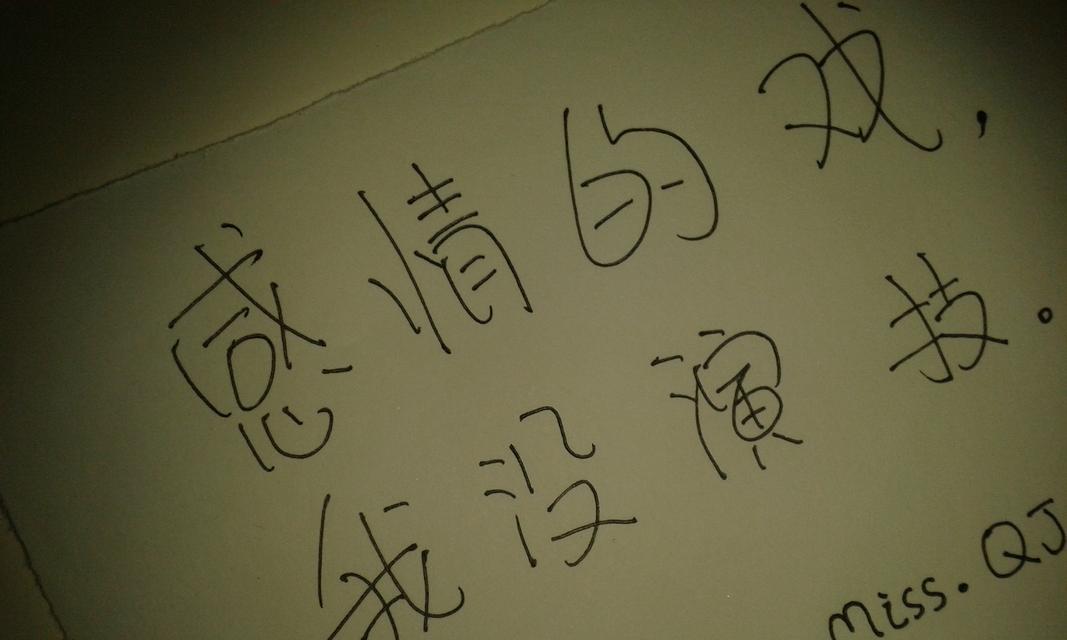 感情的戏,
我没演技.
miss.QJ